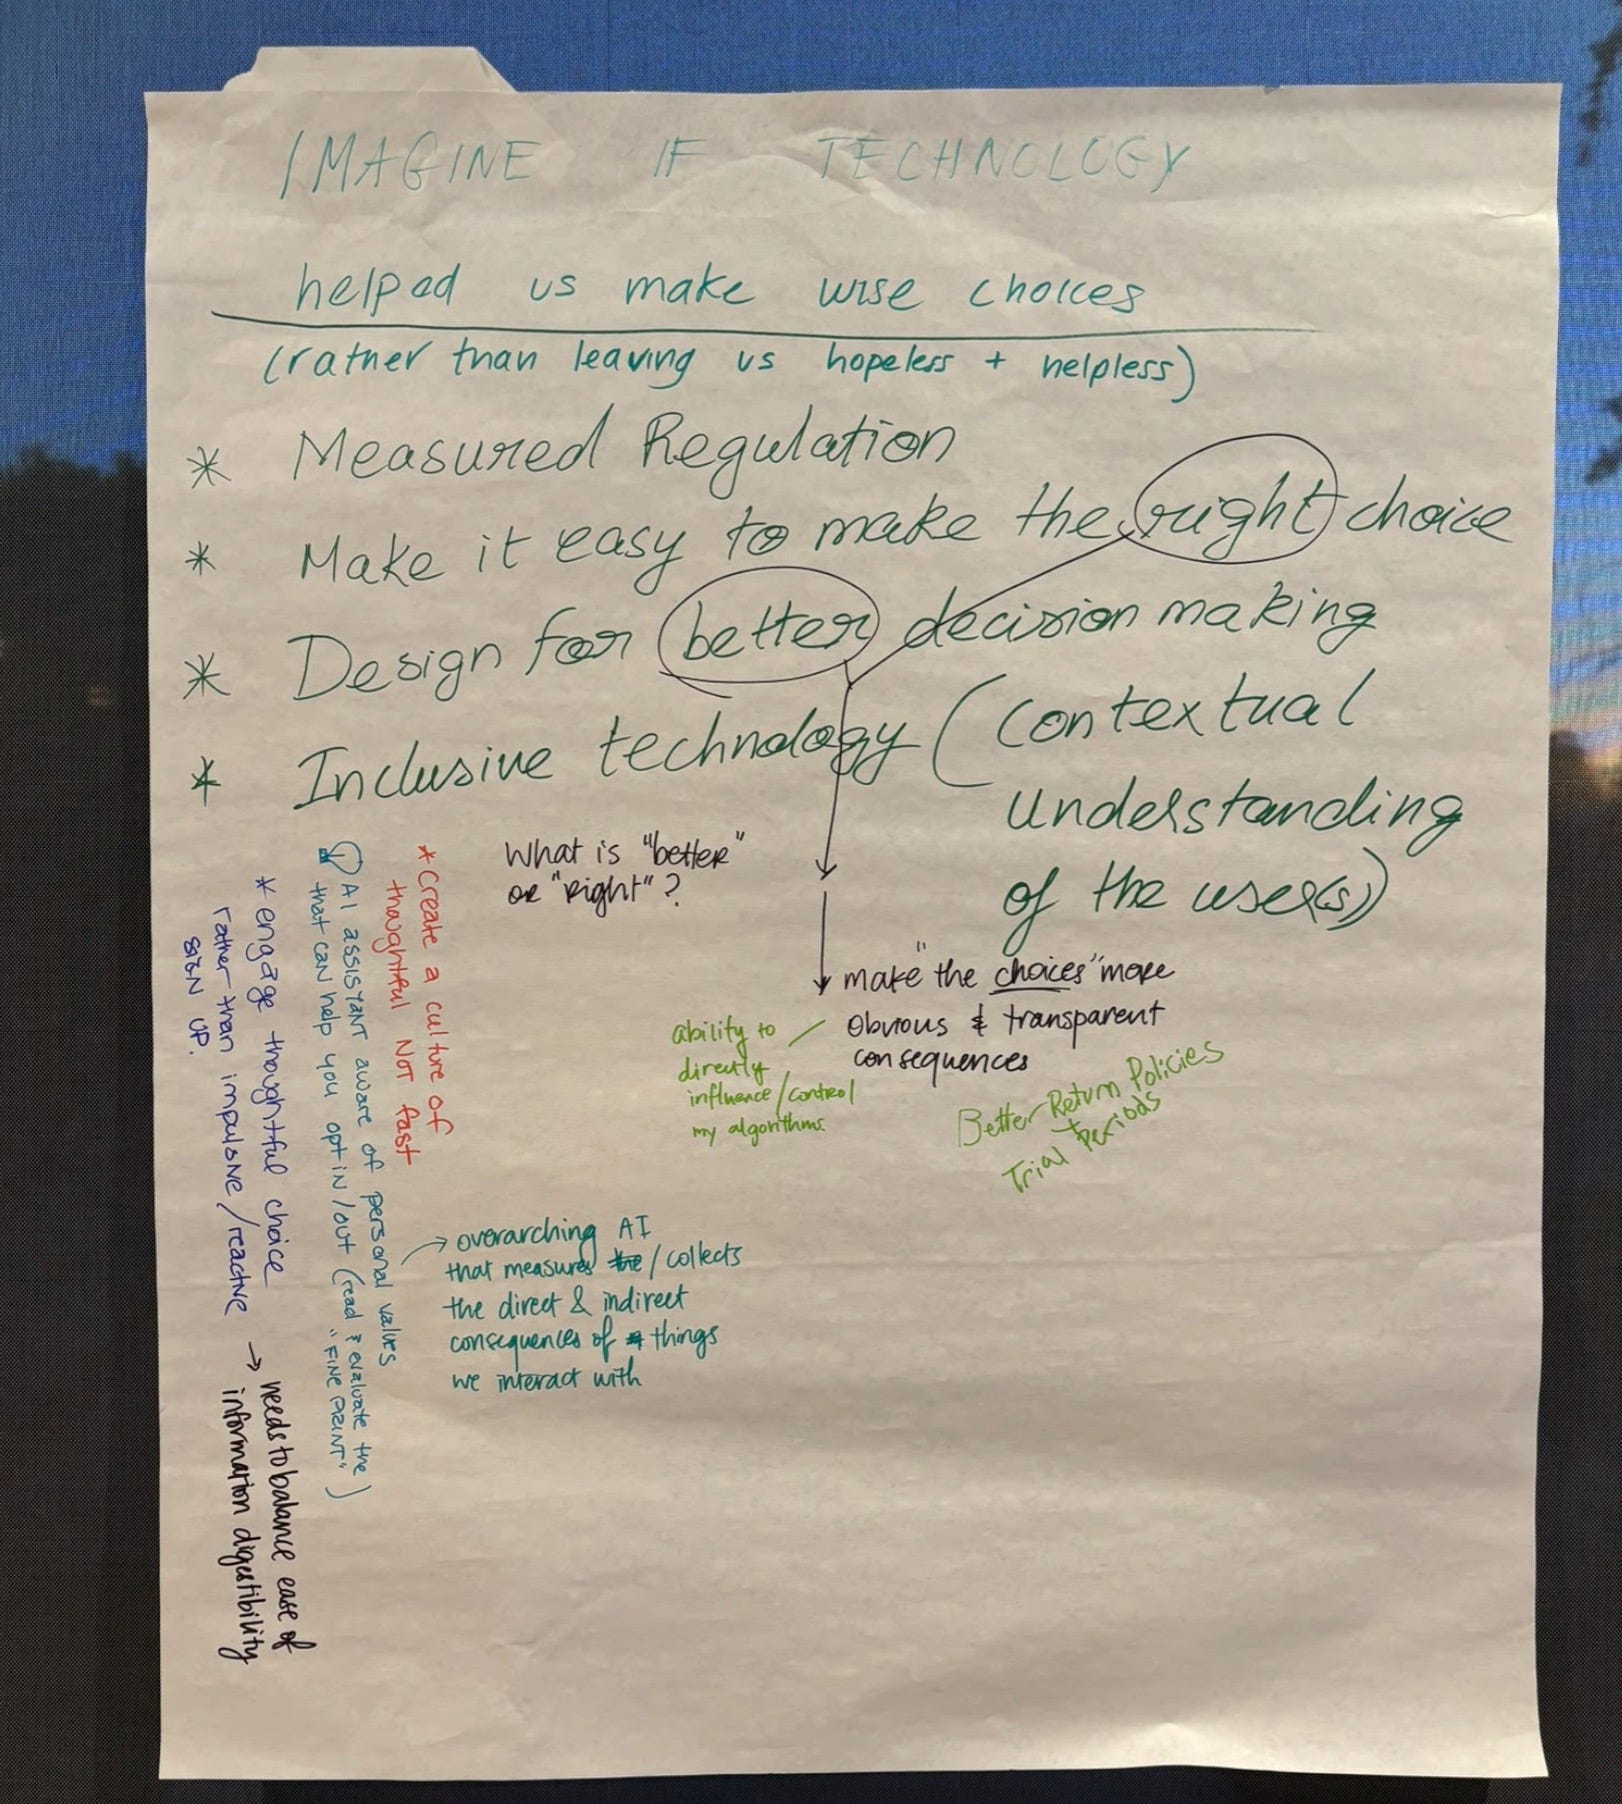 IMAGINE IF TECHNOLOGY
helped us make wise choices
(rather than leaving us hopeless + helpless)
* Measured Regulation
* Make it easy to make the right choice
* Design for better decision making
* Inclusive technology (contextual
understanding
of the user(s))
What is "better"
or "right"?
"make "the choices" more
obvious & transparent
consequences
ability to
directly
influence/control
my algorithms.
Better Return Policies
+
Trial Periods
* create a culture of
thoughtful NOT fast
AI assistant aware of personal values
that can help you opt in/out (read & evaluate the
"FINE PRINT")
→ overarching AI
that measures the / collects
the direct & indirect
consequences of things
we interact with
* engage thoughtful choice
rather than impulsive/reactive
sign up.
→ needs to balance ease of
information digestibility